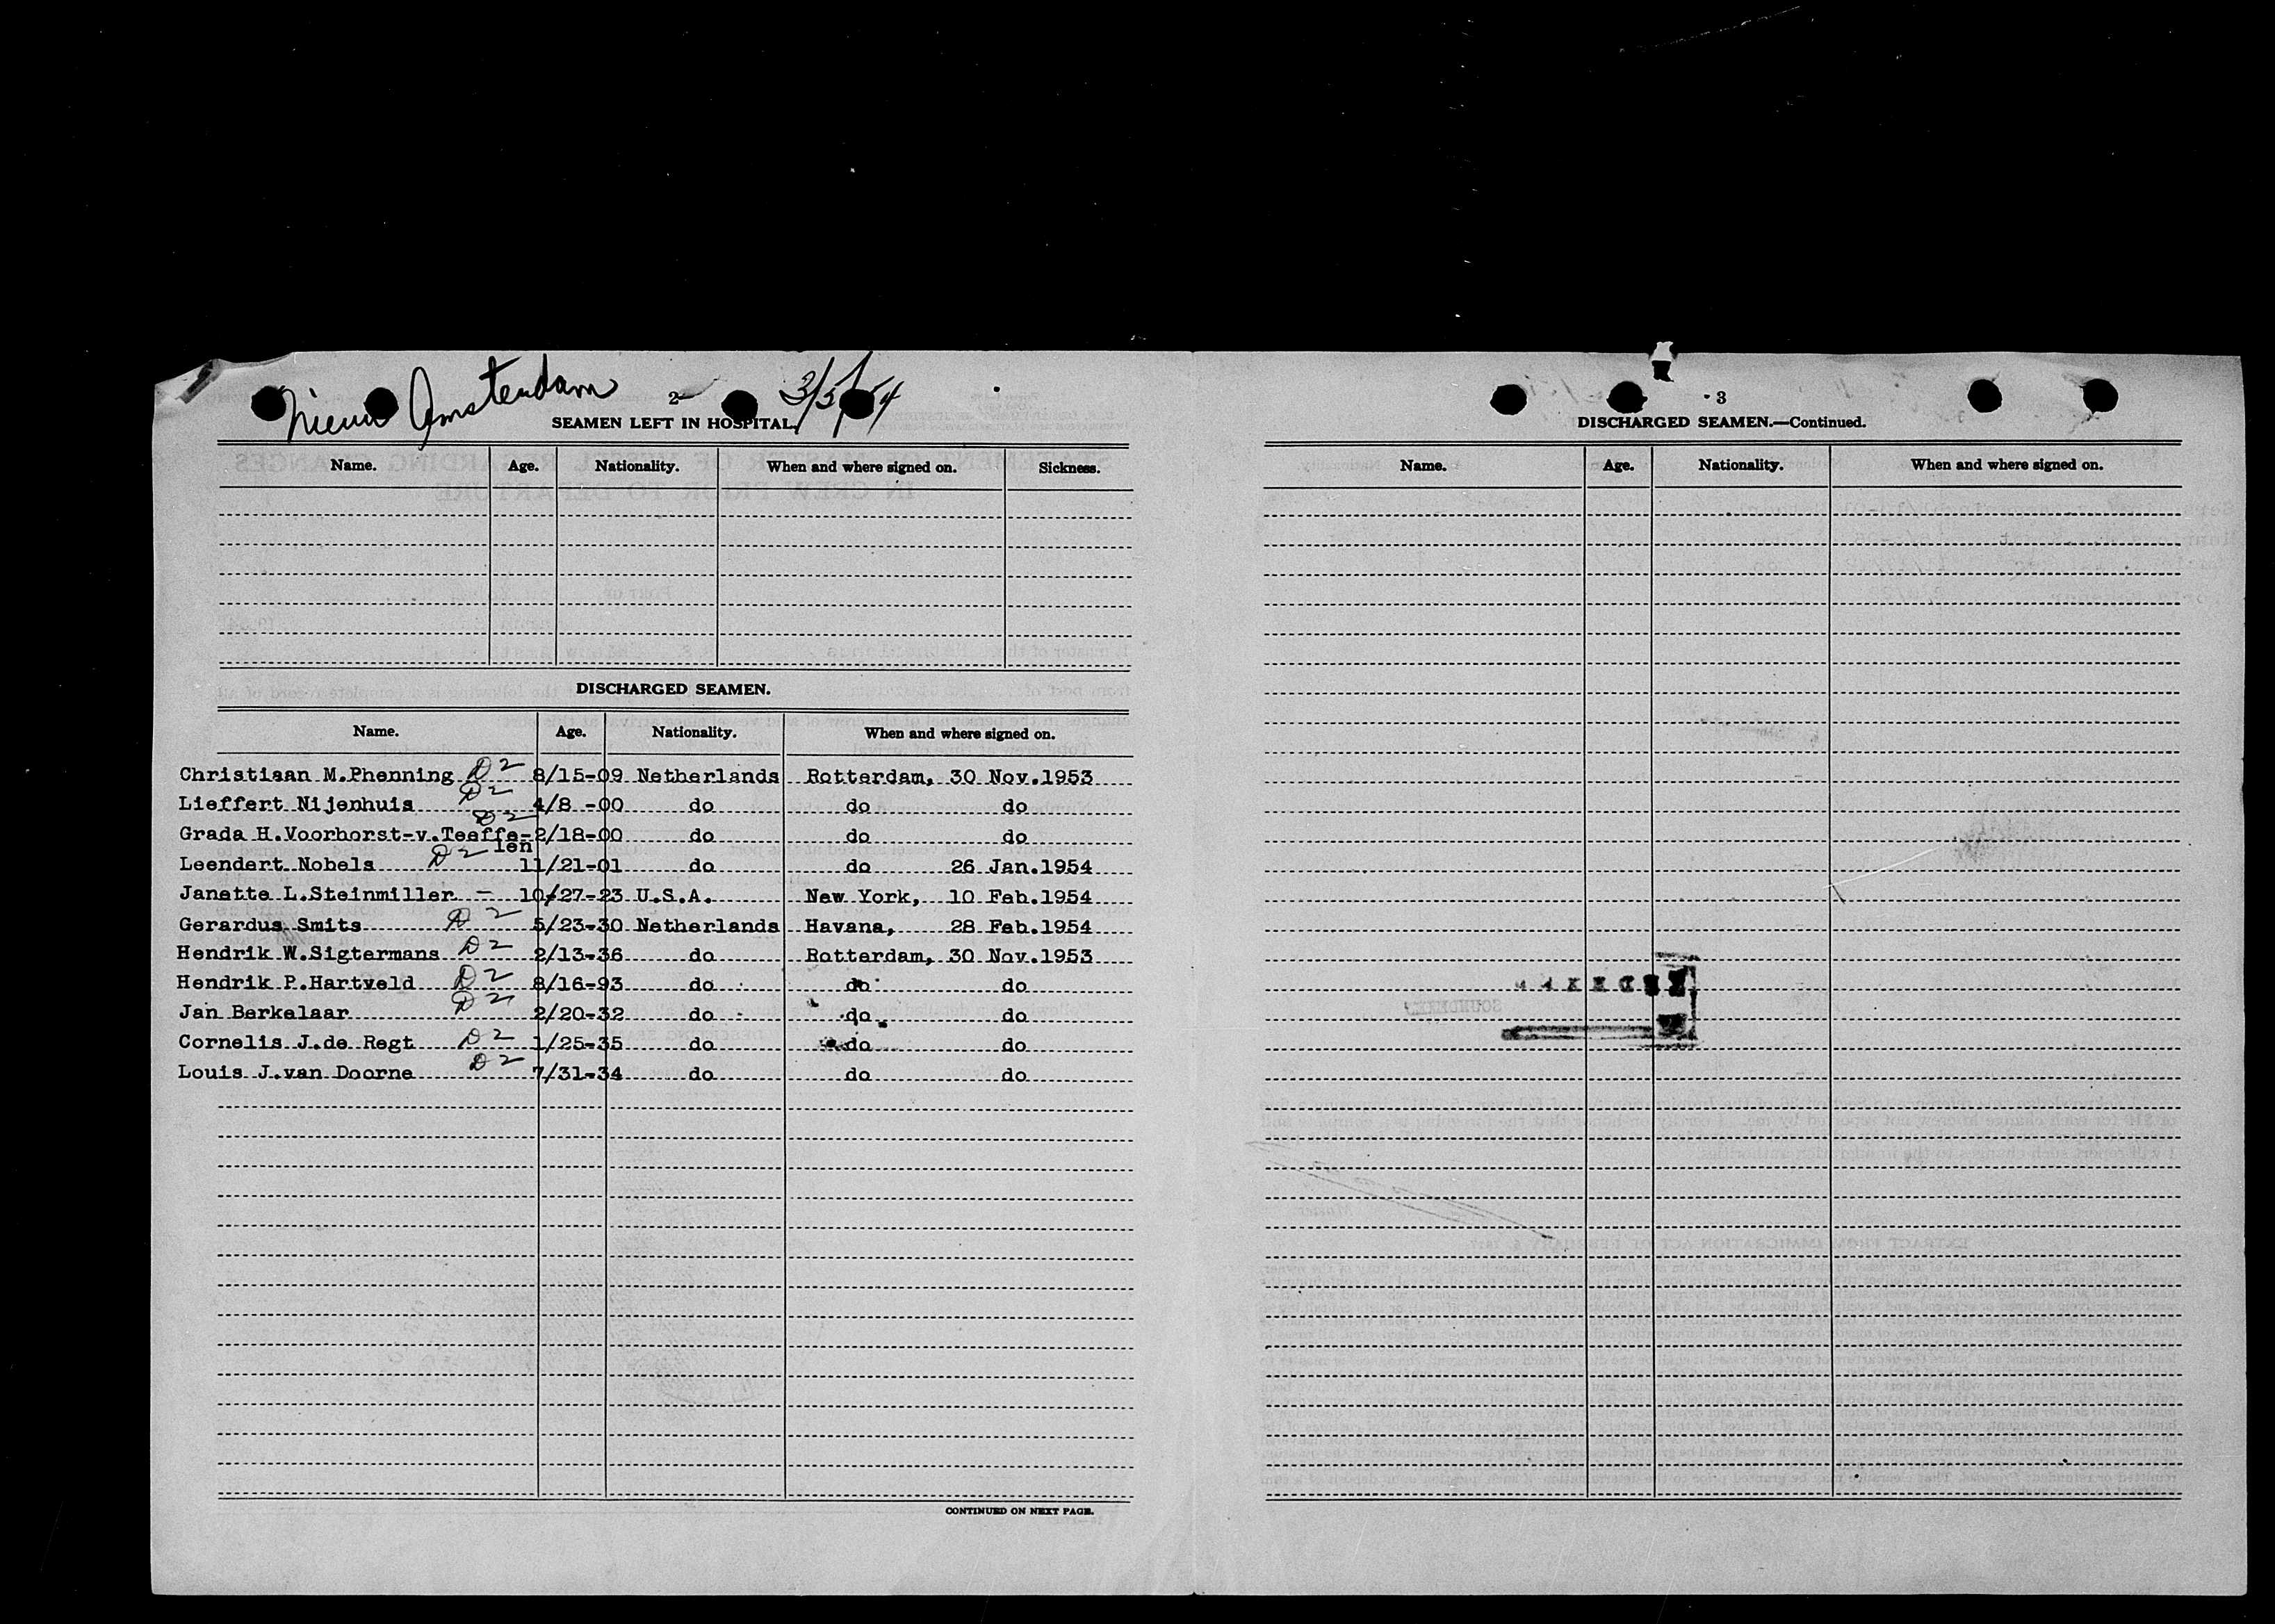 Nieuw Amsterdam 3/5/54
2
SEAMEN LEFT IN HOSPITAL.
Name. Age. Nationality. When and where signed on. Sickness.
DISCHARGED SEAMEN.
Name. Age. Nationality. When and where signed on.
Christiaan M.Phenning D2 8/15-09 Netherlands Rotterdam, 30 Nov.1953
Lieffert Nijenhuis D2 4/8 -00 do do do
Grada H.Voorhorst-v.Teeffe- D2 2/18-00 do do do
len
Leendert Nobels D2 11/21-01 do do 26 Jan.1954
Janette L.Steinmiller - 10/27-23 U.S.A. New York, 10 Feb.1954
Gerardus Smits D2 5/23-30 Netherlands Havana, 28 Feb.1954
Hendrik W.Sigtermans D2 2/13-36 do Rotterdam, 30 Nov.1953
Hendrik P.Hartveld D2 8/16-93 do do do
Jan Berkelaar D2 2/20-32 do do do
Cornelis J.de Regt D2 1/25-35 do do do
Louis J.van Doorne D2 7/31-34 do do do
CONTINUED ON NEXT PAGE.
3
DISCHARGED SEAMEN.—Continued.
Name. Age. Nationality. When and where signed on.